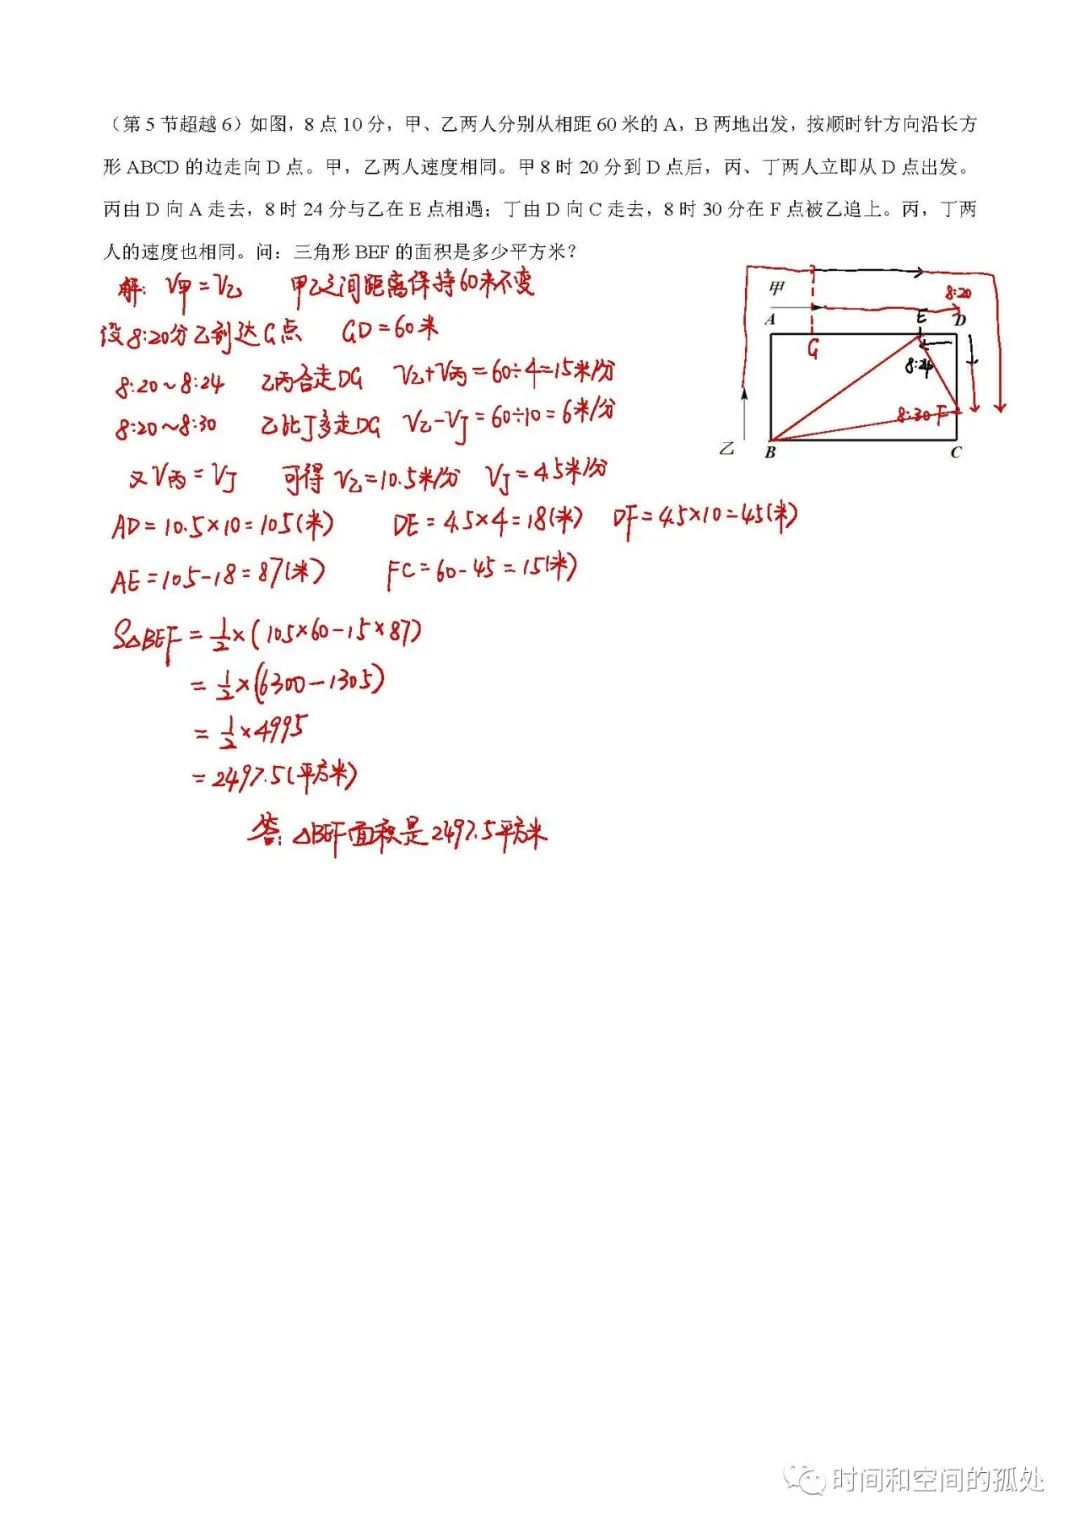 （第5节超越6）如图，8点10分，甲、乙两人分别从相距60米的A，B两地出发，按顺时针方向沿长方
形ABCD的边走向D点。甲，乙两人速度相同。甲8时20分到D点后，丙、丁两人立即从D点出发。
丙由D向A走去，8时24分与乙在E点相遇；丁由D向C走去，8时30分在F点被乙追上。丙，丁两
人的速度也相同。问：三角形BEF的面积是多少平方米？
解：V甲=V乙 甲乙之间距离保持60米不变
设8:20分乙到达G点 GD=60米
8:20~8:24 乙丙合走DG V乙+V丙=60÷4=15米/分
8:20~8:30 乙比丁多走DG V乙-V丁=60÷10=6米/分
又V丙=V丁 可得V乙=10.5米/分 V丁=4.5米/分
AD=10.5×10=105(米) DE=4.5×4=18(米) DF=4.5×10=45(米)
AE=105-18=87(米) FC=60-45=15(米)
S△BEF=½×(105×60-15×87)
=½×(6300-1305)
=½×4995
=2497.5(平方米)
答：△BEF面积是2497.5平方米
甲 8:20
A E D
G 8:24
8:30 F
乙 B C
时间和空间的孤处